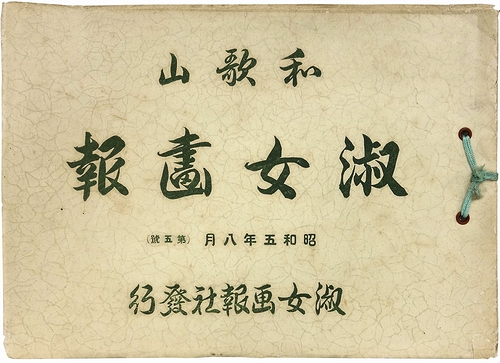 和歌山
淑女畫報
昭和五年八月（第五號）
淑女画報社發行